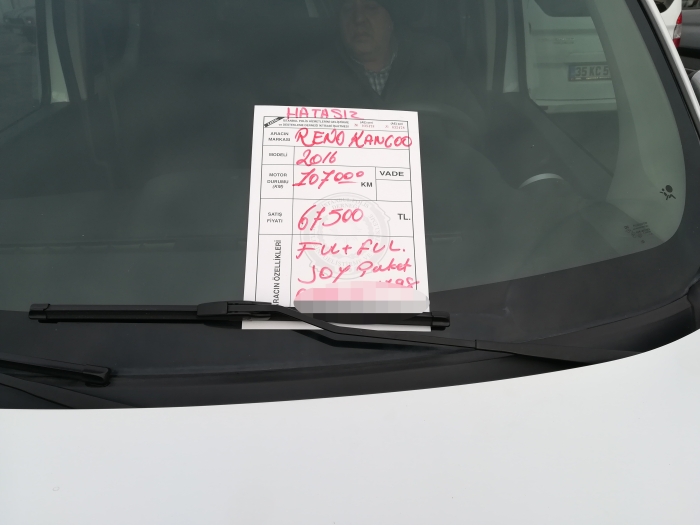 HATASIZ
ARACIN MARKASI RENO KANGOO
MODELİ 2016
MOTOR DURUMU (KM) 107000 KM VADE
SATIŞ FİYATI 67.500 TL.
ARACIN ÖZELLİKLERİ
FUL+FUL.
JOY Paket